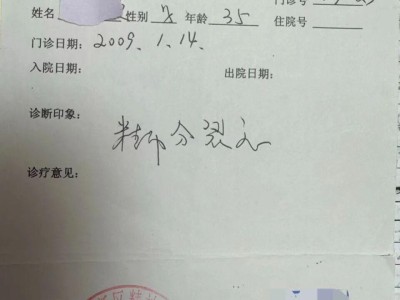 门诊号
姓名 性别 女 年龄 35 住院号
门诊日期：2009. 1. 14.
入院日期： 出院日期：
诊断印象：
精神分裂症
诊疗意见：